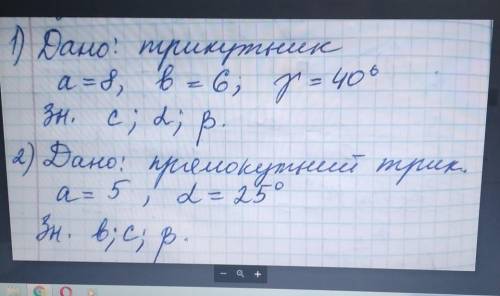 1) Дано: трикутник
a = 8, в = 6; γ = 40°
Зн. c; α; β.
2) Дано: прямокутний трик.
a = 5, α = 25°
Зн. в; c; β.